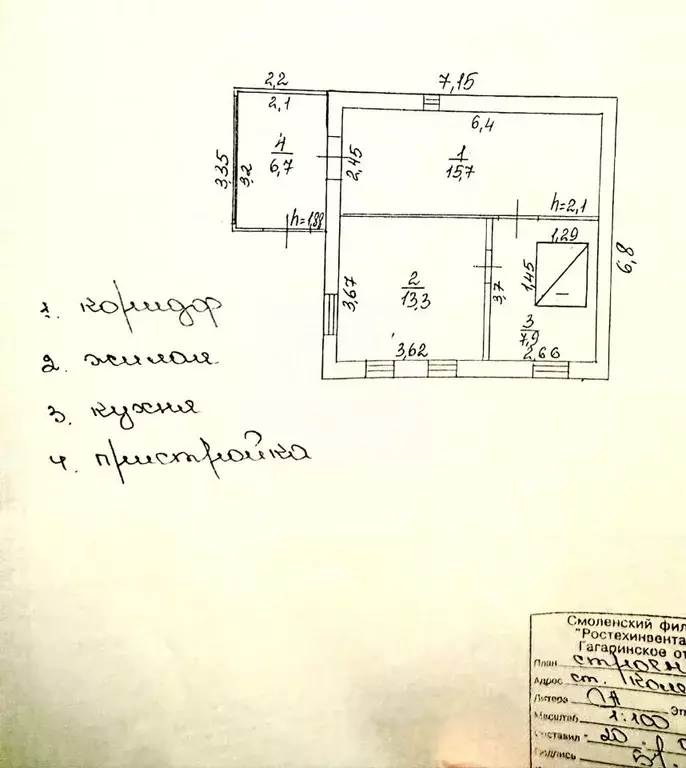 2,2
7,15
2,1
6,4
4
6,7
3,35
3,2
2,45
1
15,7
h=1,88
h=2,1
1,29
6,8
1,45
3,67
2
13,3
3,7
3
7,9
3,62
2,66
1. коридор
2. жилая
3. кухня
4. пристройка
Смоленский фил
"Ростехинвента
Гагаринское от
План строен
Адрес ст. Коле
Литера А Эт
Масштаб 1:100
Составил 20
Подпись